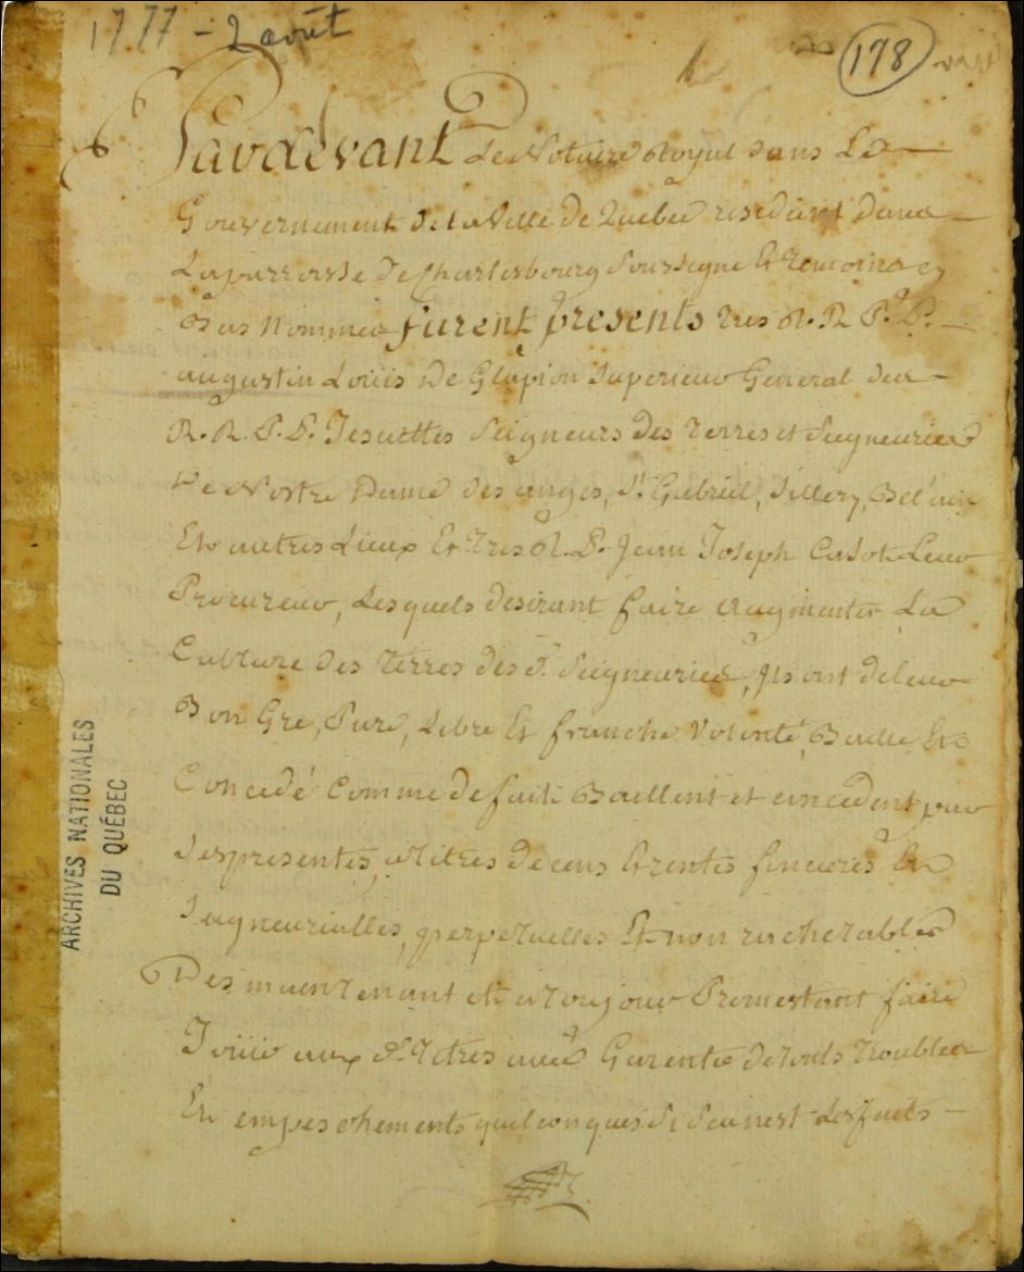 1777 - 2 août
178
Pardevant Le Notaire Royal dans Le
Gouvernement de la Ville de Quebec residant dans
La parroisse de Charlesbourg Soussigne Et Temoins cy
Bas Nommes furent presents Tres R. R. P. P.
augustin Loüis De Glapion Superieur General des
R. R. P. P. Jesuittes Seigneurs des Terres et Seigneuries
De Nostre Dame des anges, St. Gabriel, Sillery, Bel'air
Et autres Lieux Et Tres R. P. Jean Joseph Casot Leur
Procureur, Lesquels desirant faire augmenter La
Culture des Terres des d. Seigneuries, Ils ont de leur
Bon Gré, Pure, Libre Et franche Volonté, Baillé Et
Concedé Comme de fait Baillent et concedent par
Ses presentes, a Titres de cens Et rentes foncieres Et
Seigneurialles, perpetuelles Et non rachetables
Des maintenant et a Toujour Promestant faire
Joüir aux d. Titres avec Garentie de Touts Troubles
Et empeschements quelconques Si Se n'est Les faits
ARCHIVES NATIONALES
DU QUÉBEC